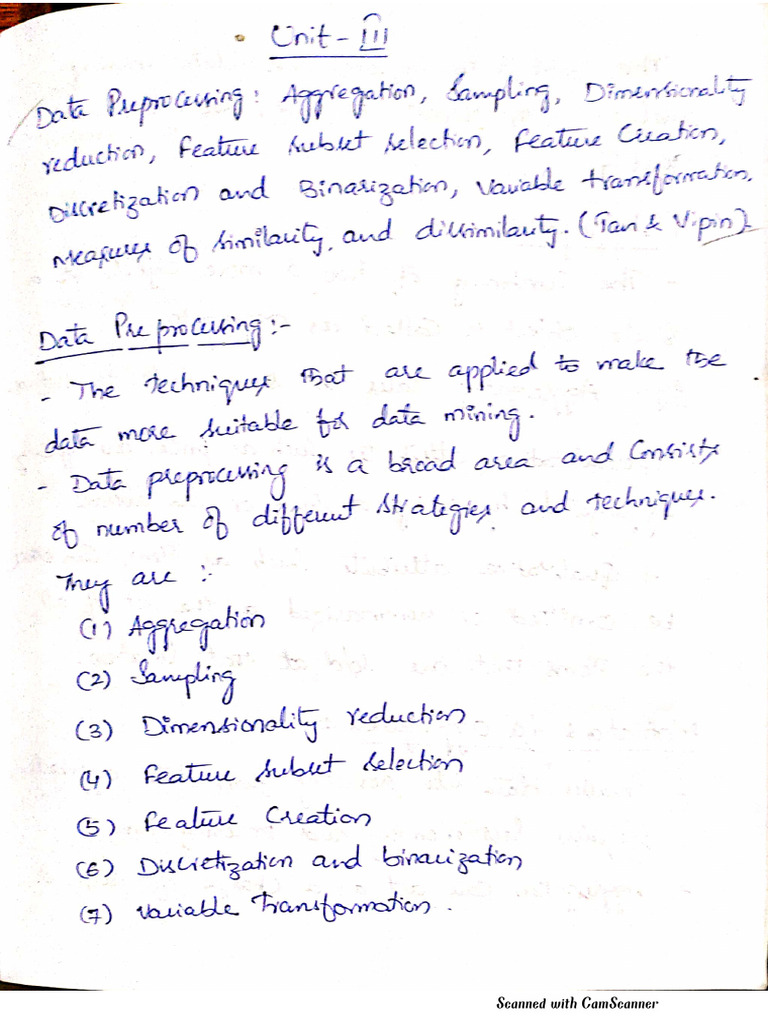 Unit - III
Data Preprocessing: Aggregation, Sampling, Dimensionality
reduction, Feature subset selection, Feature Creation,
Discretization and Binarization, Variable transformation,
Measures of similarity, and dissimilarity. (Tan & Vipin).
Data Preprocessing:-
- The techniques that are applied to make the
data more suitable for data mining.
- Data preprocessing is a broad area and consists
of number of different strategies and techniques.
They are :-
(1) Aggregation
(2) Sampling
(3) Dimensionality reduction.
(4) Feature subset selection
(5) Feature Creation
(6) Discretization and binarization
(7) Variable Transformation.
Scanned with CamScanner